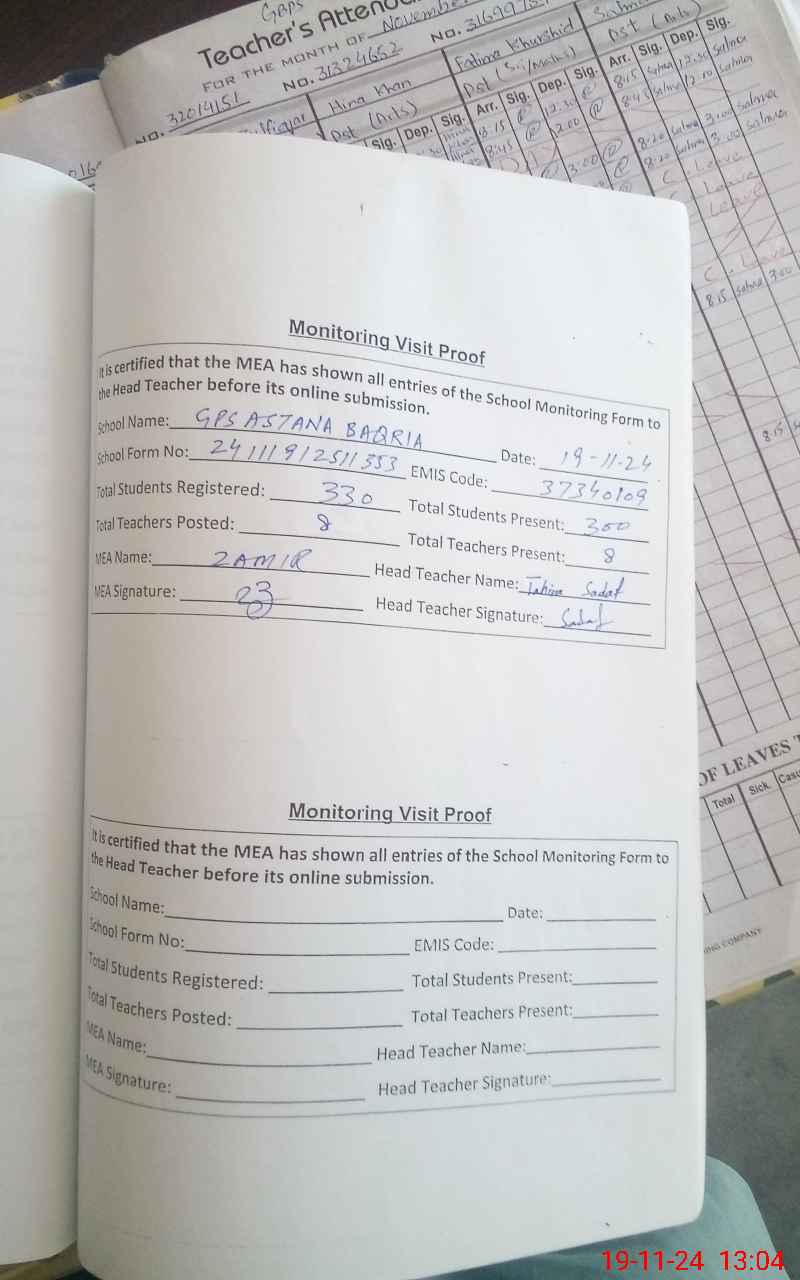 GPS
Teacher's Attend
FOR THE MONTH OF November
NO. 32014151 NO. 31324652 NO. 3169975
Hina Khan Fatima Khurshid Salma
Pst (Arts) Pst (Sci/Maths) Pst (Arts)
Sig. Dep. Sig. Arr. Sig. Dep. Sig. Arr. Sig. Dep. Sig.
8:15 12:30 8:15 Salma 12:30 Salma
8:45 2:00 8:45 Salma 12:00 Salma
3:00 8:20 Salma 3:00 Salma
8:20 Salma 3:00 Salma
C. Leave
Leave
Leave
C. Leave
8:15 Salma 3:00
8:15
Monitoring Visit Proof
It is certified that the MEA has shown all entries of the School Monitoring Form to
the Head Teacher before its online submission.
School Name: GPS ASTANA BAQRIA Date: 19-11-24
School Form No: 24111912511353 EMIS Code: 37340109
Total Students Registered: 330 Total Students Present: 300
Total Teachers Posted: 8 Total Teachers Present: 8
MEA Name: ZAMIR Head Teacher Name: Tahira Sadaf
MEA Signature: Head Teacher Signature: Sadaf
OF LEAVES T
Total Sick Casu
ING COMPANY
Monitoring Visit Proof
It is certified that the MEA has shown all entries of the School Monitoring Form to
the Head Teacher before its online submission.
School Name: Date:
School Form No: EMIS Code:
Total Students Registered: Total Students Present:
Total Teachers Posted: Total Teachers Present:
MEA Name: Head Teacher Name:
MEA Signature: Head Teacher Signature:
19-11-24 13:04